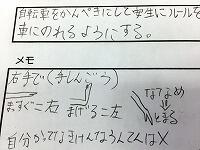 自転車をかんぺきにして安全にルールを
車にのれるようにする。
メモ
右手で(手しんごう)
まっすぐ=右 まげる=左
ななめ
とまる
自分かってなきけんなうんてんはX